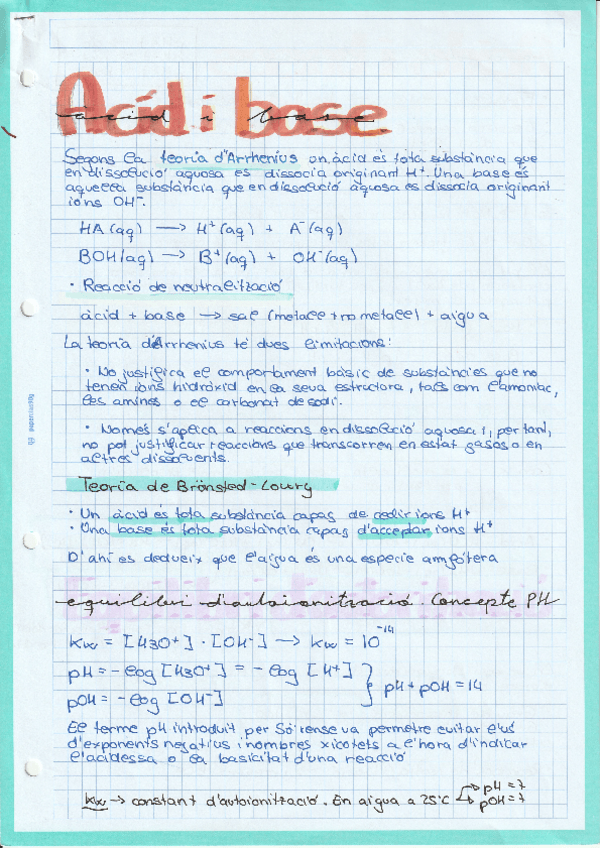 Àcid i base
àcid i base
Segons la teoria d'Arrhenius un àcid és tota substància que
en dissolució aquosa es dissocia originant H⁺. Una base és
aquella substància que en dissolució aquosa es dissocia originant
ions OH⁻.
HA(aq) → H⁺(aq) + A⁻(aq)
BOH(aq) → B⁺(aq) + OH⁻(aq)
· Reacció de neutralització
àcid + base → sal (metall + no metall) + aigua
La teoria d'Arrhenius té dues limitacions:
· No justifica el comportament bàsic de substàncies que no
tenen ions hidròxid en la seva estructura, tals com l'amoníac,
les amines o el carbonat de sodi.
· Només s'aplica a reaccions en dissolució aquosa i, per tant,
no pot justificar reaccions que transcorren en estat gasós o en
altres dissolvents.
Teoría de Brönsted-Lowry
· Un àcid és tota substància capaç de cedir ions H⁺
· Una base és tota substància capaç d'acceptar ions H⁺
D'ahí es dedueix que l'aigua és una especie amfótera
equilibri d'autoionització. Concepte PH
Kw = [H3O⁺] · [OH⁻] → Kw = 10⁻¹⁴
pH = -log [H3O⁺] = -log [H⁺]
} pH + pOH = 14
pOH = -log [OH⁻]
El terme pH introduit per Sörense va permetre evitar l'ús
d'exponents negatius i nombres xicotets a l'hora d'indicar
l'acidessa o la basicitat d'una reacció
Kw → constant d'autoionització. En aigua a 25°C → pH = 7
→ pOH = 7